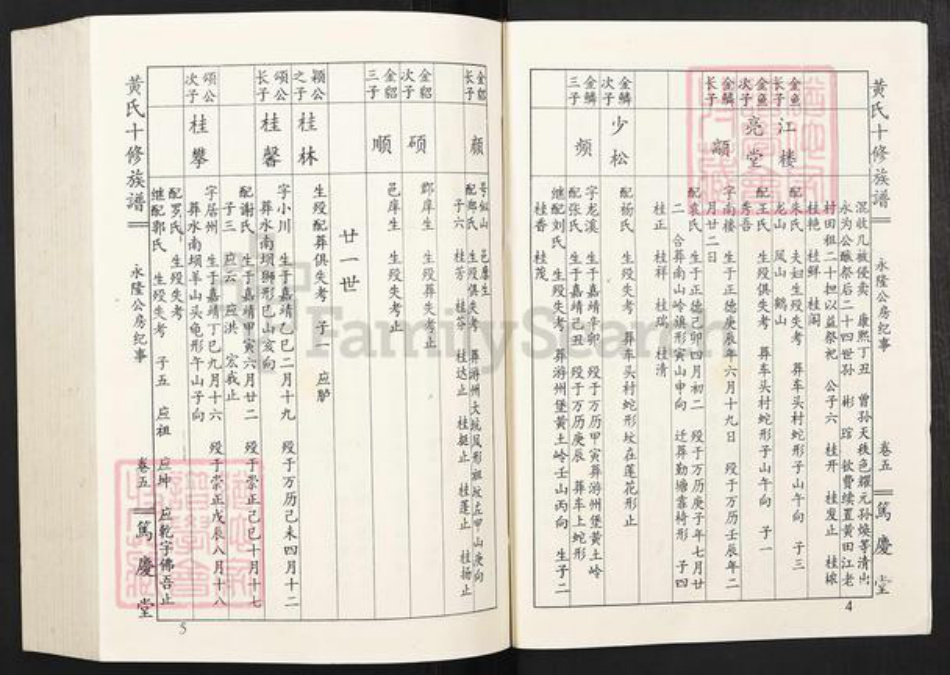 黄氏十修族譜
永隆公房纪事
卷五
篤慶堂
4
混收几被侵卖 康熙丁丑 曾孙天秩色耀元孙焕等清出
永为公醮祭后二十四世孙 彬 琯 钦费续置黄田江老
村田租二十担以益祭祀 公子六 桂开 桂发止 桂嫁
桂艳 桂鲜 桂阁
金鱼长子
江楼
配朱氏 夫妇生殁失考 葬车头村蛇形子山午向 子三
龙山 凤山 鹤山
金鱼次子
亮堂
配王氏 生殁俱失考 葬车头村蛇形子山午向 子一
秀吾
金鳞长子
颛
字南楼 生于正德庚辰年六月十九日 殁于万历壬辰年二
月廿二日
配袁氏 生于正德己卯四月初二 殁于万历庚子年七月廿
二 合葬南山岭旗形寅山申向 迁葬勤塘靠椅形 子四
桂正 桂祥 桂瑞 桂清
金鳞次子
少松
配杨氏 生殁失考 葬车头村蛇形坟在莲花形止
金鳞三子
频
字龙溪 生于嘉靖辛卯 殁于万历甲寅葬游州堡黄土岭
配张氏 生于嘉靖己丑 殁于万历庚辰 葬车上蛇形
继配刘氏 生殁失考 葬游州堡黄土岭壬山丙向 生子二
桂香 桂茂
金貂长子
颜
号仙山 邑庠生
生殁俱失考 葬游州大坑凤形祖坟左甲山庚向
子六 桂芳 桂芬 桂达止 桂挺止 桂蓬止 桂扬止
金貂次子
硕
郡庠生 生殁葬失考止
金貂三子
顺
邑庠生 生殁失考止
廿一世
颖公之子
桂林
生殁配葬俱失考 子一 应胪
颂公长子
桂馨
字小川 生于嘉靖己巳二月十九 殁于万历己未四月十二
葬水南坝狮形巳山亥向
配谢氏 生于嘉靖甲寅六月廿二 殁于崇正己巳十月十七
子三 应云 应洪 宏我止
颂公次子
桂攀
字居州 生于嘉靖丁巳九月十六 殁于崇正戊辰八月十八
葬水南坝羊山头龟形午山子向
配罗氏 生殁失考
继配郭氏 生殁失考 子五 应祖 应坤 应乾字佛吾止
黄氏十修族譜
永隆公房纪事
卷五
篤慶堂
5
FamilySearch